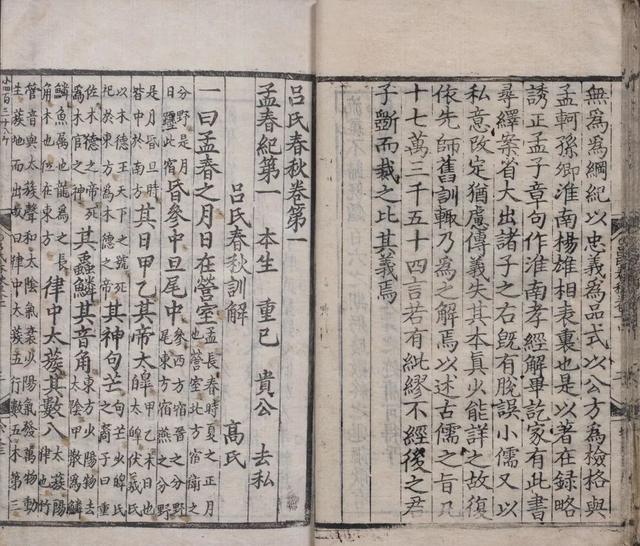 無爲爲綱紀以忠義爲品式以公方爲檢格與
孟軻孫卿淮南楊雄相表裏也是以著在録略
誘正孟子章句作淮南孝經解畢訖家有此書
尋繹案省大出諸子之右旣有脫誤小儒又以
私意改定猶慮傳義失其本眞少能詳之故復
依先師舊訓輙乃爲之解焉以述古儒之旨凡
十七萬三千五十四言若有紕繆不經後之君
子斷而裁之比其義焉
呂氏春秋卷第一
孟春紀第一 本生 重己 貴公 去私
呂氏春秋訓解 高氏
一曰孟春之月日在營室孟長春時夏之正月也營室北方宿衛之
分野是月日躔此宿昏參中旦尾中參西方宿晉之分野尾東方宿燕之分野
是月昏旦時皆中於南方其日甲乙其帝太皥甲乙木日也太皥伏羲氏
以木德王天下之號死祀於東方爲木德之帝其神句芒句芒少皥氏之裔子曰重
佐木德之帝死爲木官之神其蟲鱗其音角東方少陽物去太陰甲散爲鱗
鱗魚屬也龍爲之長角木也位在東方律中太蔟其數八太蔟陽律也竹
管音與太蔟聲和太陰氣衰少陽氣發萬物動生蔟地而出故曰律中太蔟五行數五木第三
小四百二十八